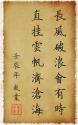 長風破浪會有時
直挂雲帆濟滄海
壬辰年